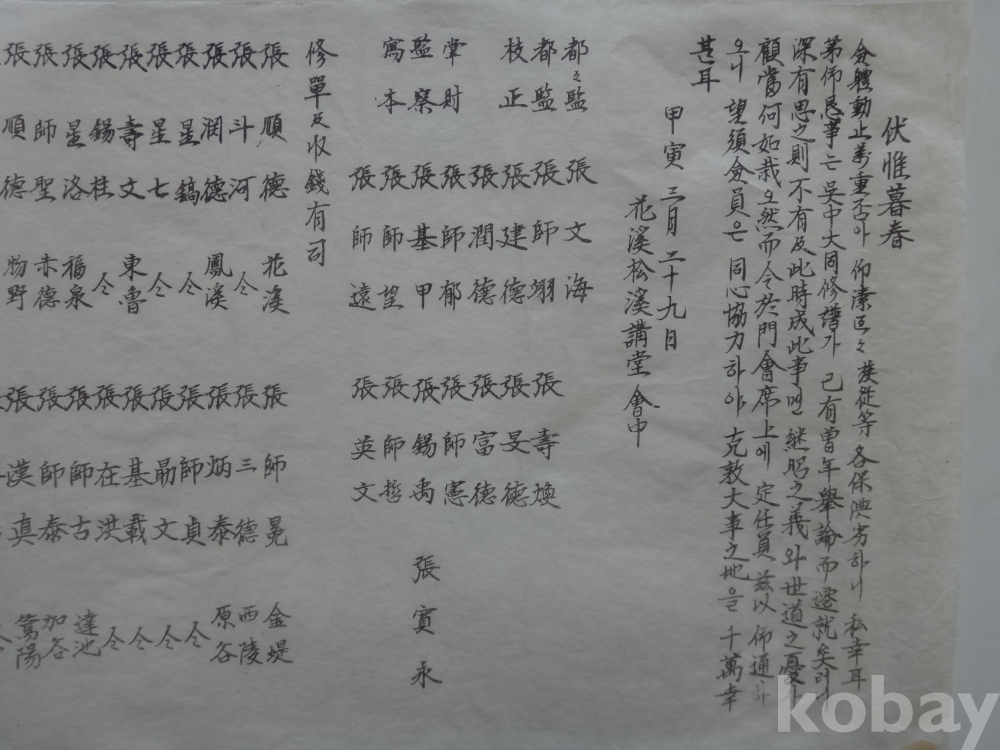 伏惟暮春
僉體動止萬重否아 仰溸區々 族從等 各保 劣하니 私幸耳
第仰恳事는 吳中大同修譜가 已有曾年擧論而遷就矣러니
深有思之則不有及此時成此事면 繼昭之義와 世道之憂가
顧當何如哉오 然而今於門會席上에 定任員 玆以 仰通하
오니 望須僉員은 同心協力하야 克敦大事之地을 千萬幸
甚耳
甲寅 三月 二十九日
花溪松溪講堂會中
都々監 張文海
都監 張師翊 張壽煥
校正 張建德 張旻德
張潤德 張富德
掌財 張師郁 張師憲
監察 張基甲 張錫禹 張寅永
寫本 張師望 張師哲
張師遠 張英文
修單及収錢有司
張順德 花溪 張師晃 金堤
張斗河 仝 張三德 西陵
張潤德 鳳溪 張炳泰 原谷
張星鎬 仝 張師貞 仝
張星七 仝 張勗文 仝
張壽文 東魯 張基載 仝
張錫桂 仝 張在洪 仝
張星洛 福泉 張師古 達池
張師聖 赤德 張師泰 加谷
張順德 勿野 張漢眞 篤陽
kobay